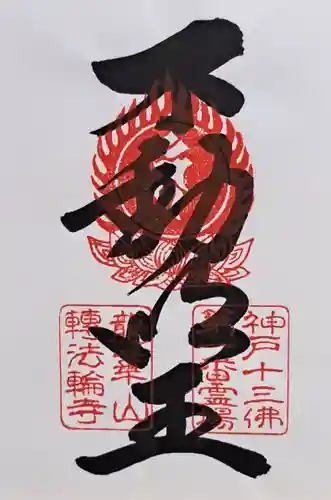 不動明王
神戸十三佛
番靈場
龍華山
轉法輪寺